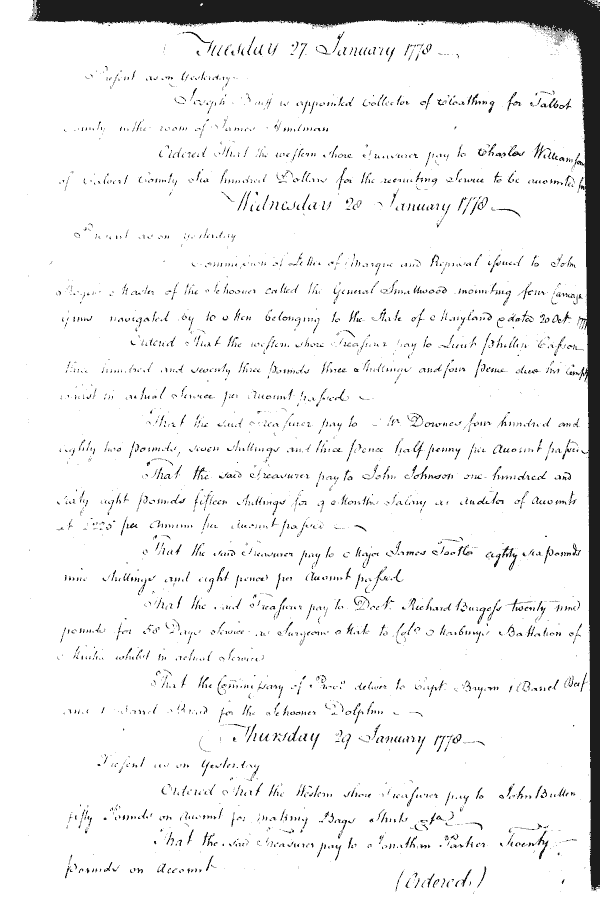 Tuesday 27. January 1778
Present as on Yesterday
Joseph Bruff is appointed Collector of Cloathing for Talbot
County in the room of James Hindman
Ordered That the western shore Treasurer pay to Charles Williamson
of Calvert County Six hundred Dollars for the recruiting Service to be accounted for
Wednesday 28 January 1778
Present as on yesterday
Commission of Letter of Marque and Reprisal issued to John
Rogers Master of the Schooner called the General Smallwood mounting four Carriage
Guns navigated by 10 Men belonging to the State of Maryland dated 20 Oct. 1777
Ordered That the western shore Treasurer pay to Lieut Phillip Casson
three hundred and seventy three pounds three Shillings and four pence due his Comp.y
whilst in actual Service per Account passed
That the said Treasurer pay to Mr Downes four hundred and
eighty two pounds, seven shillings and three pence half penny per Account passed
That the said Treasurer pay to John Johnson one hundred and
sixty eight pounds fifteen shillings for 9 Months Salary as Auditor of Accounts
at £225 per Annum per Account passed
That the said Treasurer pay to Major James Tootle eighty six pounds
nine shillings and eight pence per Account passed
That the said Treasurer pay to Doct. Richard Burgess twenty nine
pounds for 58 Days Service as Surgeons Mate to Colo Marbury's Battalion of
Militia whilst in actual Service
That the Commissary of Provs deliver to Capt. Bryom 1 Barrel Beef
and 1 Barrel Bread for the Schooner Dolphin
Thursday 29 January 1778
Present as on Yesterday
Ordered That the Western shore Treasurer pay to John Bullen
fifty Pounds on Account for making Bags Shirts &ca
That the said Treasurer pay to Jonathan Parker Twenty
Pounds on Account
(Ordered)